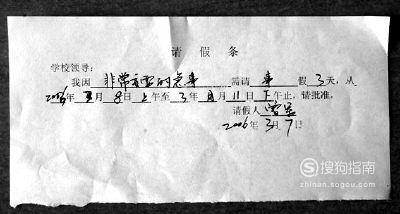 请假条
学校领导:
我因非常重要的急事需请事假3天,从
2006年3月8日上午至3月11日下午止,请批准。
请假人
2006年3月7日
搜狗指南
zhinan.sogou.com